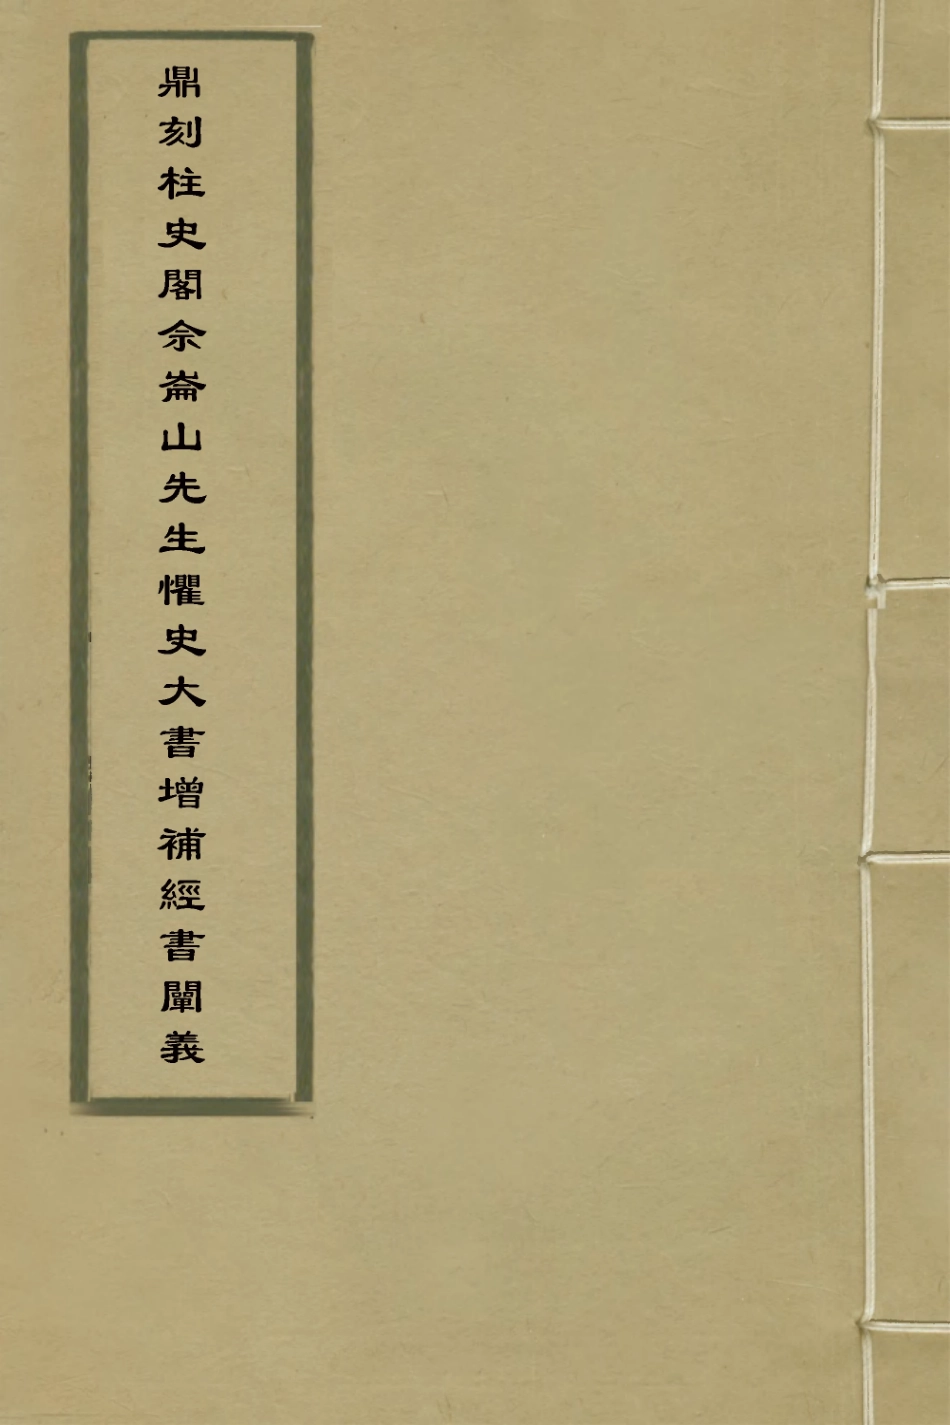 鼎刻柱史閣佘崙山先生懼史大書增補經書闡義